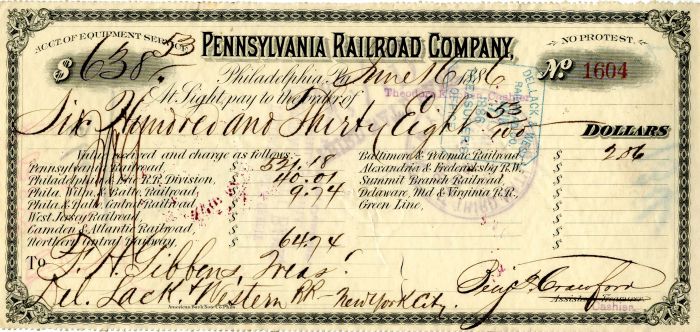 ACCT. OF EQUIPMENT SERVICE. PENNSYLVANIA RAILROAD COMPANY, NO PROTEST.
$ 638.53 Philadelphia, Pa June 16 1886 No. 1604
At Sight, pay to the order of Theodore Cashier
Six Hundred and Thirty Eight 53/100 DOLLARS
Value received and charge as follows:
Pennsylvania Railroad, $ 321.18
Philadelphia & Erie R.R. Division, $ 40.01
Phila. Wilm. & Balto. Railroad, $ 9.74
Phila. & Balto. Central Railroad, $
West Jersey Railroad, $
Camden & Atlantic Railroad, $
Northern Central Railway, $ 64.74
Baltimore & Potomac Railroad, $ 2.86
Alexandria & Fredericksb'g R.W. $
Summit Branch Railroad, $
Delaware, Md & Virginia R.R., $
Green Line, $
DEL. LACK. & WEST.
1886
TREASURER'S
OFFICE
To F. H. Gibbens, Treas.
Del. Lack. & Western RR - New York City.
Benj. F. Crawford
Assistant Treasurer
Cashier.
American Bank Note Co. Phila.